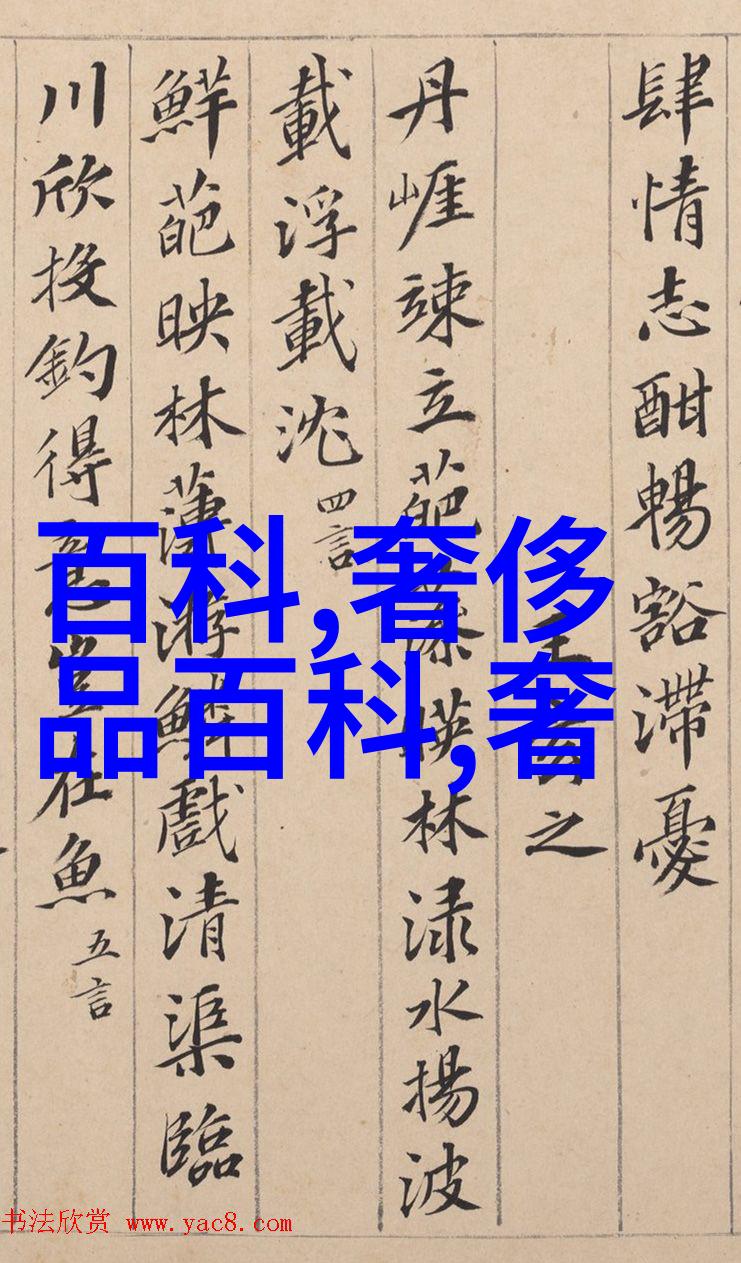 肆情志酣暢豁滯憂
王之
丹崕竦立葩藻暎林淥水揚波
載浮載沈 四言
鮮葩映林薄游鱗戲清渠臨
川欣投釣得意豈在魚 五言
百科,奢侈
品百科,奢
书法欣赏 www.yac8.com